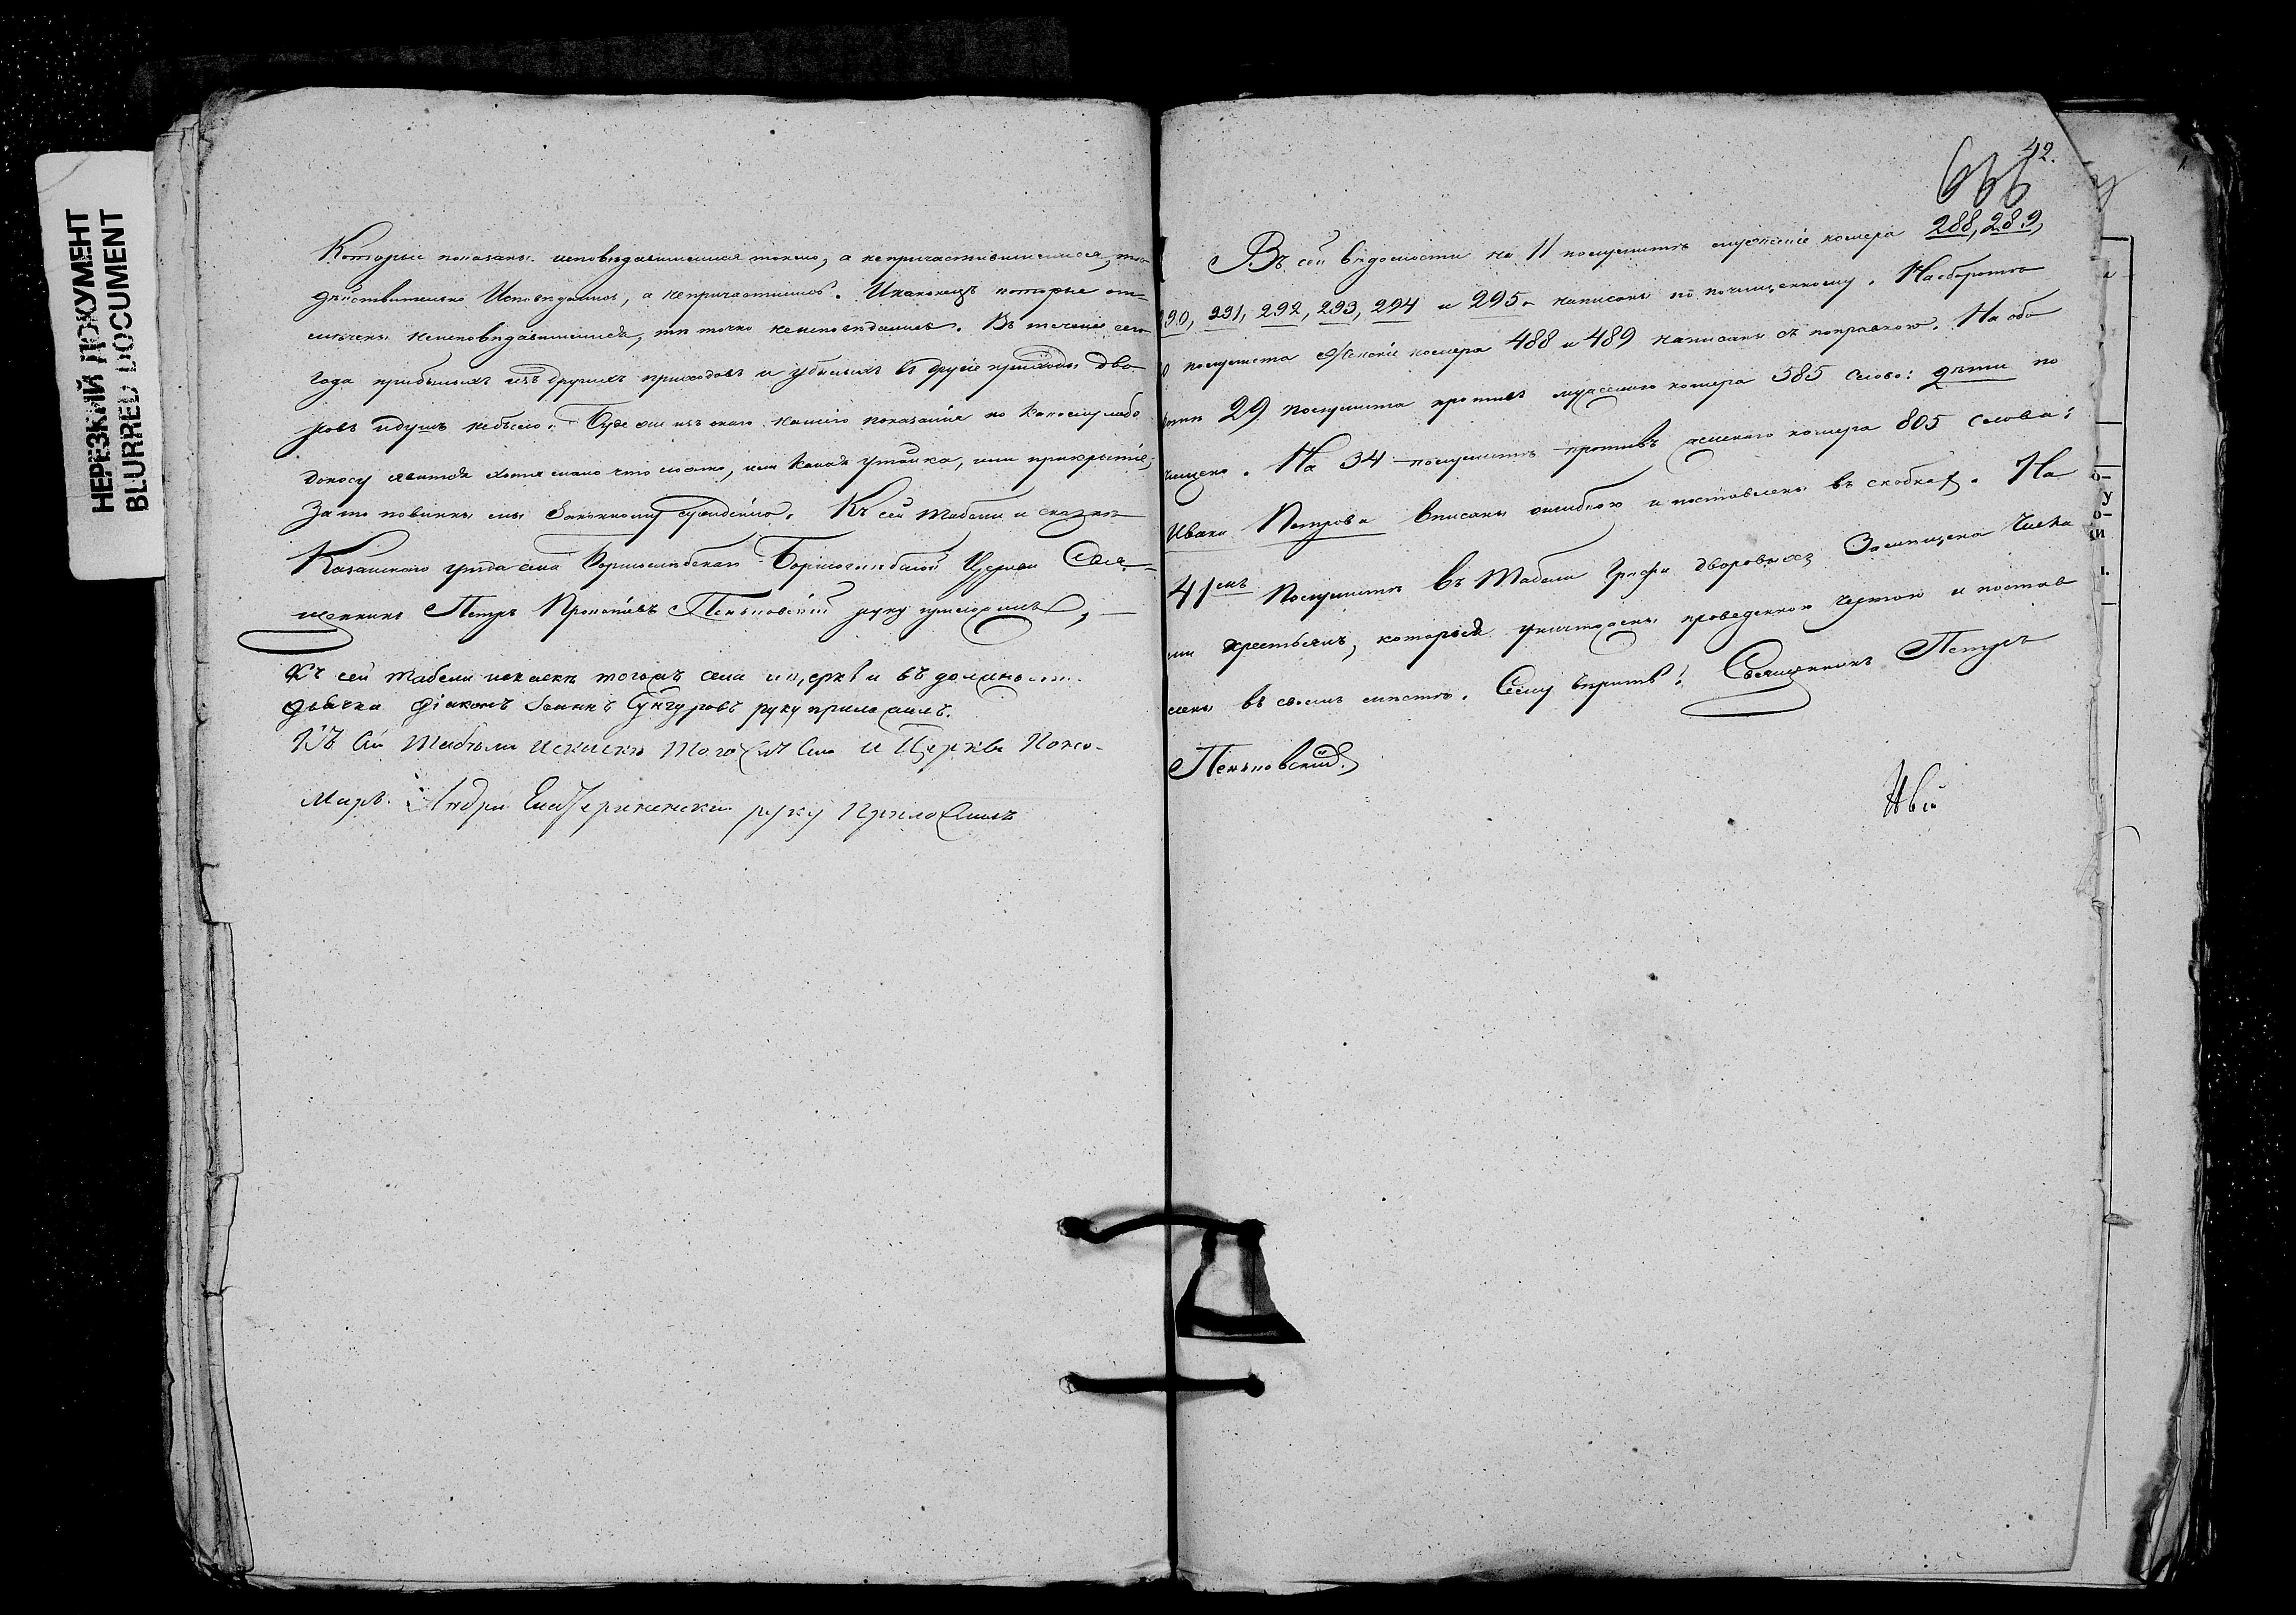 НЕРЕЗКИЙ ДОКУМЕНТ
BLURRED DOCUMENT
Которые показаны исповѣдавшимися токмо, а непричастившимися, тѣ
дѣйствительно Исповѣдались, а непричастились. Инаконецъ которые от-
мѣчены неисповѣдавшимися, тѣ точно неисповѣдались. Въ теченіе сего
года прибылыхъ изъ другихъ приходовъ и убылыхъ въ другіе приходы дво-
ровъ идушъ небыло. Буде же изъ онаго нашего показанія по какому либо
доносу явится хотя мало что ложно, или какая утайка, или прикрытіе,
За то повинны мы Законному сужденію. Къ сей табели и сказкѣ
Казанскаго уѣзда села Церкви Свя-
щенникъ Петръ Прокопіевъ Пеньковскій руку приложилъ,
Къ сей табели исказкѣ тогожъ села ицеркви въ должности
дьячка діаконъ Іоаннъ Сунгуровъ руку приложилъ.
Къ сей табели исказкѣ того жъ села и Церкви Поно-
марь Андрей руку приложилъ
42.
666
Въ сей вѣдомости на 11 полулистѣ мужескіе номера 288, 289,
290, 291, 292, 293, 294 и 295 написаны по почищенному. Наоборотѣ
полулиста Женскіе номера 488 и 489 написаны съ поправкою. На обо
ротѣ 29 полулиста противъ мужескаго номера 585 слово: дѣти по
чищено. На 34 полулистѣ противъ женскаго номера 805 слова:
Ивана Петрова вписаны ошибкою и поставлены въ скобкахъ. На
41емъ Полулистѣ въ Табели Графы дворовыхъ числа
ли крестьянъ, которыя уничтожены проведенною чертою и постав
лены въ своемъ мѣстѣ. Сему вѣрить: Священникъ Петръ
Пеньковскій.